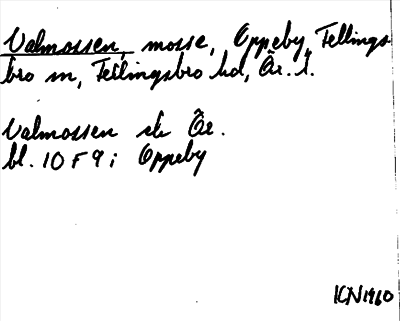 Valmossen, mosse, Oppeby, Fellings-
bro sn, Fellingsbro hd, Ör. l.
Valmossen ek Ör.
bl. 10 F 9 i Oppeby
KN 1960